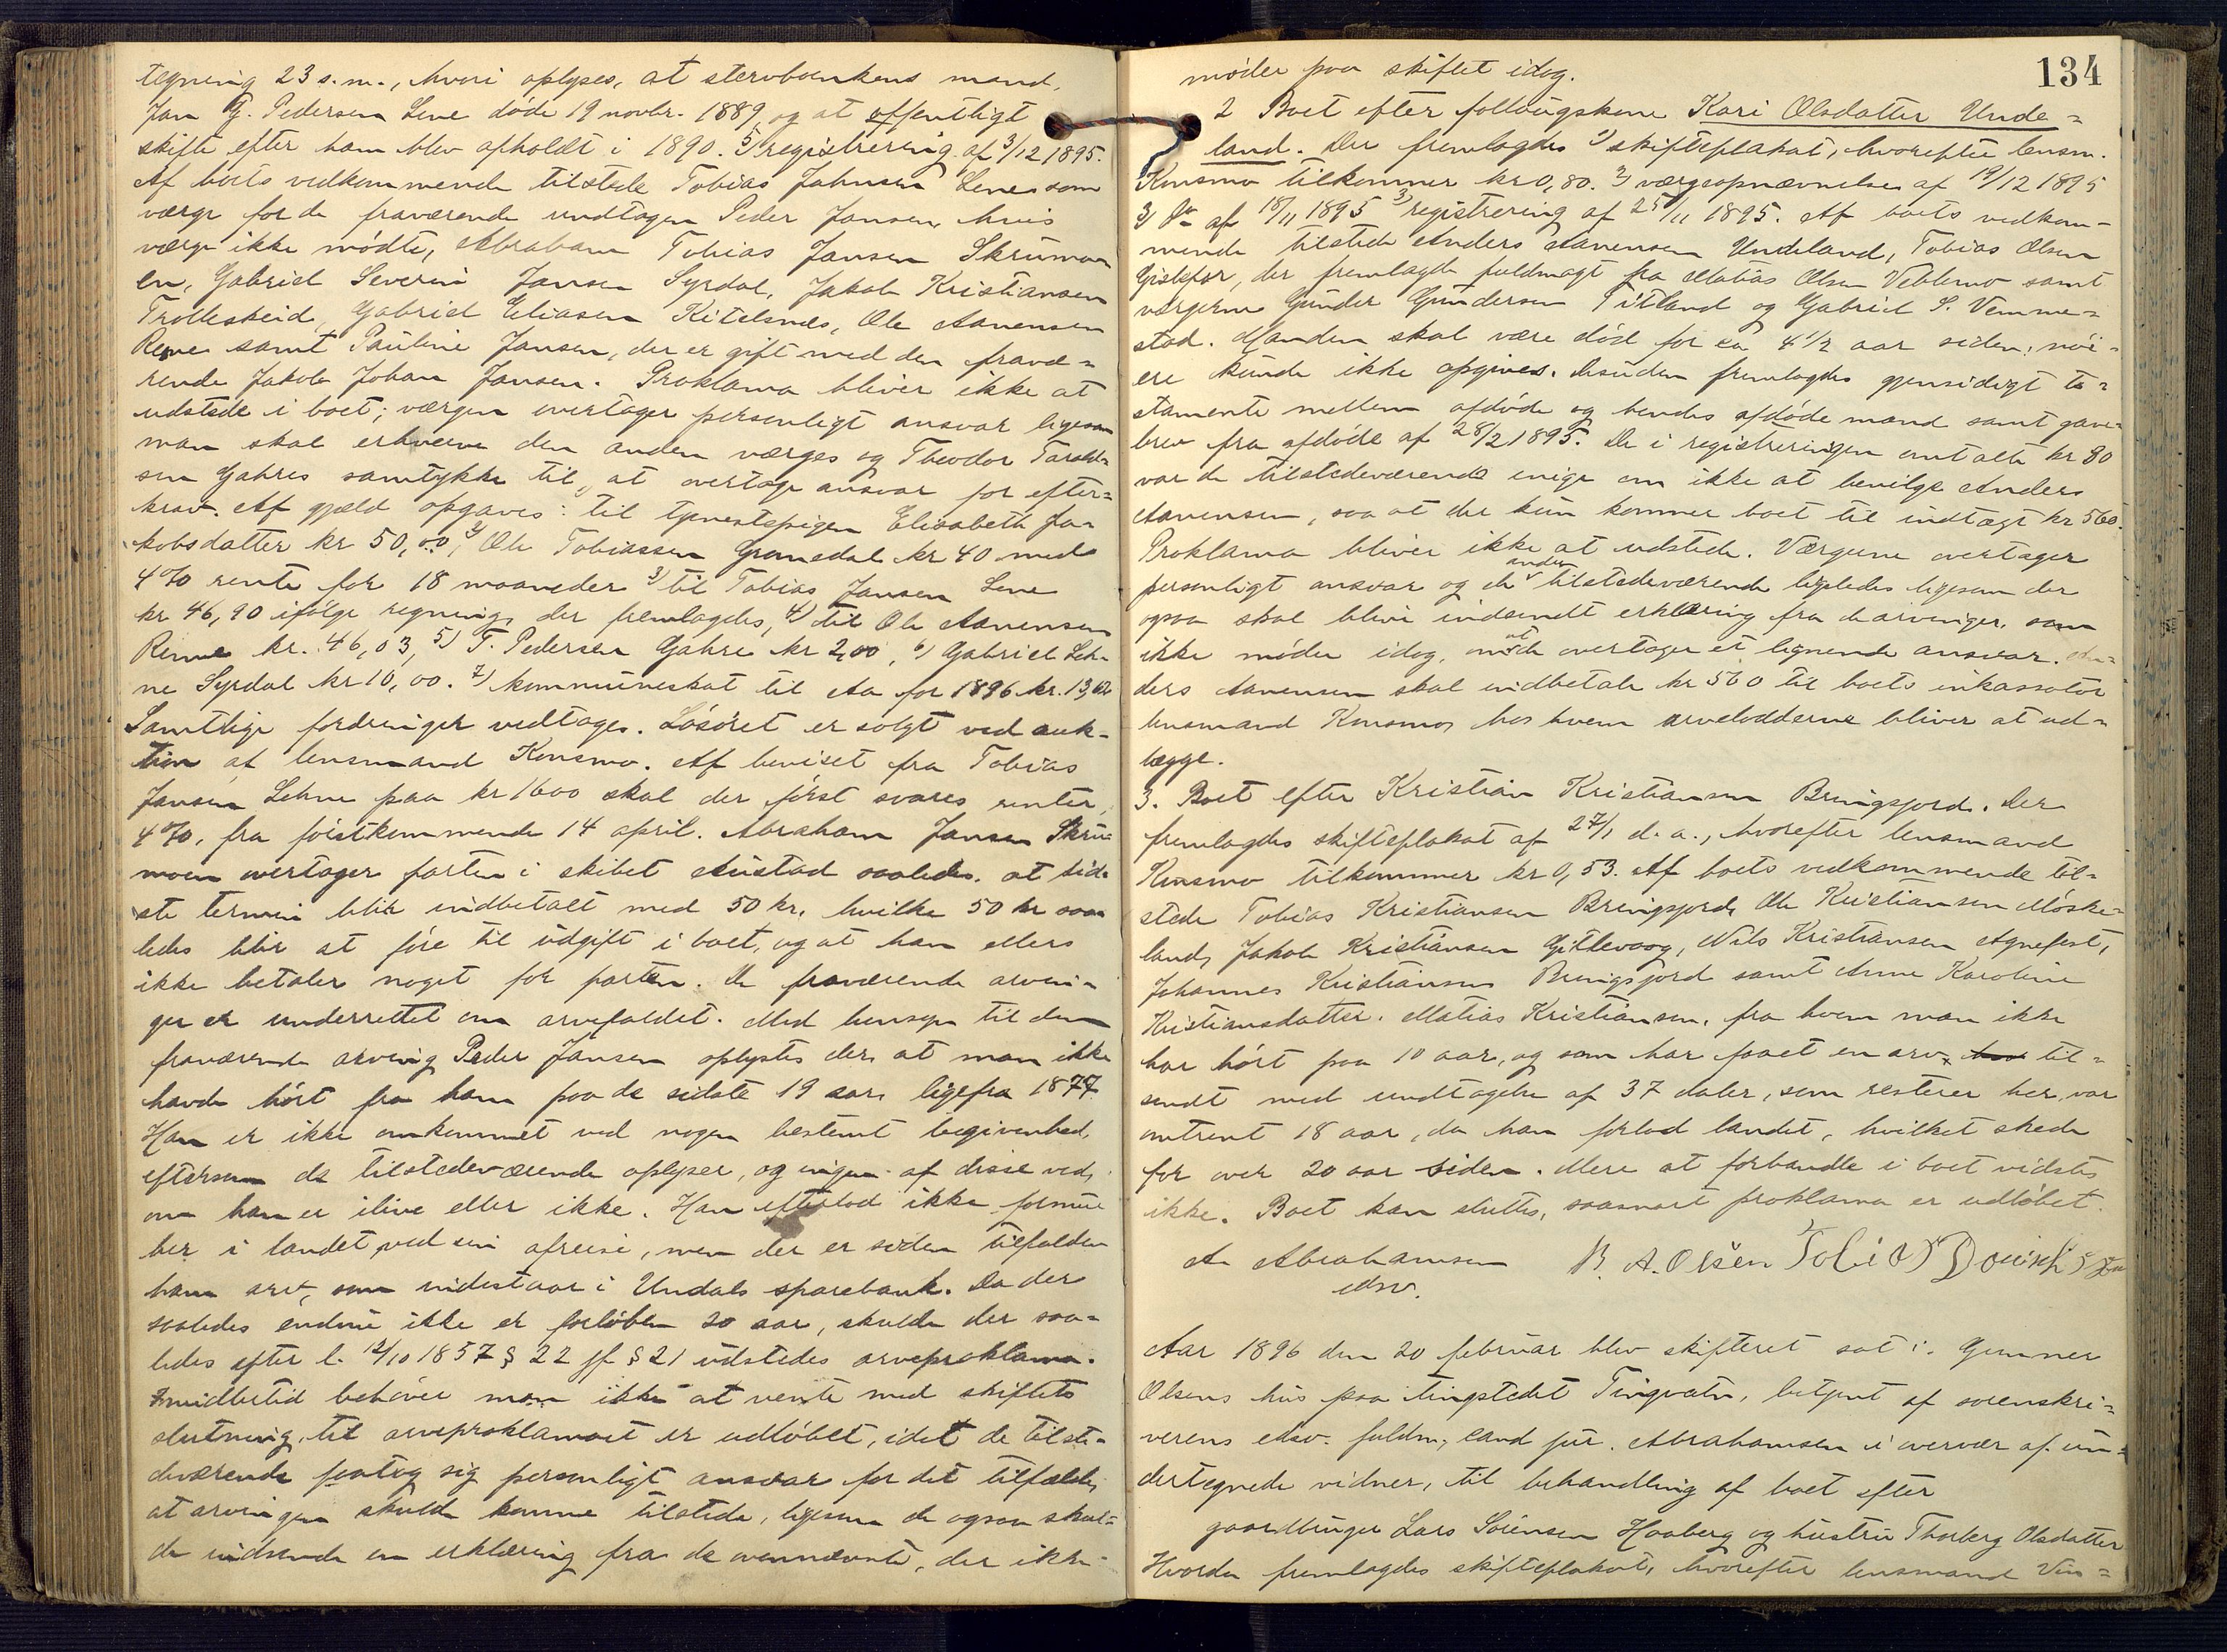 tegning 23 s.m., hvori oplyses, at stervboenkens mand,
Jan G. Pedersen Lene døde 19 novbr. 1889, og at offentligt
skifte efter ham blev afholdt i 1890. 5) registrering af 3/12 1895.
Af boets vedkommende tilstede Tobias Jahnsen Lene som
værge for de fraværende undtagen Peder Jansen, hvis
værge ikke mødte, Abraham Tobias Jansen Skrumo-
en, Gabriel Severin Jansen Syrdal, Jakob Kristiansen
Trolleskeid, Gabriel Eliasen Kitelsnes, Ole Aanensen
samt Pauline Jansen, der er gift med den fravæ-
rende Jakob Johan Jansen. Proklama bliver ikke at
udstede i boet; værgen overtager personligt ansvar ligesom
man skal erhverve den anden værges og Theodor Tarald-
sen Gahres samtykke til, at overtage ansvar for efter-
krav. Af gjæld opgaves: til tjenestepigen Elisabeth Ja-
kobsdatter kr 50,00, 2) Ole Tobiassen Grumedal kr 40 med
4% rente for 18 maaneder 3) til Tobias Jansen Lene
kr 46,90 ifølge regning, der fremlagdes, 4) til Ole Aanensen
kr. 46,03, 5) T. Pedersen Gahre kr 2,00, 6) Gabriel Leh-
ne Syrdal kr 10,00. 7) kommuneskat til Aa for 1896 kr. 13,62
Samtlige fordringer vedtages. Løsøret er solgt ved auk-
tion af lensmand Konsmo. Af beviset fra Tobias
Jansen Lehne paa kr 1600 skal der først svares renter,
4%, fra førstkommende 14 april. Abraham Jansen Skru-
moen overtager parten i skibet Austad saaledes, at sid-
ste termin blir indbetalt med 50 kr, hvilke 50 kr saa-
ledes blir at føre til udgift i boet, og at han ellers
ikke betaler noget for parten. De fraværende arvin-
ger er underrettet om arvefaldet. Med hensyn til den
fraværende arving Peder Jansen oplystes der, at man ikke
havde hørt fra ham paa de sidste 19 aar, ligefra 1877
Han er ikke omkommet ved nogen bestemt begivenhed,
eftersom de tilstedeværende oplyser, og ingen af disse ved,
om han er ilive eller ikke. Han efterlod ikke formue
her i landet ved sin afreise, men der er siden tilfalden
ham arv, som indestaar i Undals sparebank. Da der
saaledes endnu ikke er forløben 20 aar, skulde der saa-
ledes efter l. 12/10 1857 § 22 jf § 21 udstedes arveproklama.
Imidlertid behøver man ikke at vente med skiftets
slutning, til arveproklamaet er udløbet, idet de tilste-
deværende paatog sig personligt ansvar for det tilfælde,
at arvingen skulde komme tilstede, ligesom de ogsaa skul-
de indsende en erklæring fra de ovennævnte, der ikke
134
møder paa skiftet idag.
2 Boet efter follougskone Kari Olsdatter Unde-
land. Der fremlagdes 1) skifteplakat, hvorefter lensm.
Konsmo tilkommer kr 0,80. 2) værgeopnævnelse af 19/12 1895
3) Do af 18/11 1895 3) registrering af 25/11 1895. Af boets vedkom-
mende tilstede Anders Aanensen Undeland, Tobias Olsen
Gislefor, der fremlagde fuldmagt fra Matias Olsen Veblemo samt
værgerne Gunder Gundersen Titland og Gabriel S. Vemme-
stad. Manden skal være død for ca 4 1/2 aar siden; nøi-
ere kunde ikke opgives. Desuden fremlagdes gjensidigt te-
stamente mellem afdøde og hendes afdøde mand samt gave-
brev fra afdøde af 28/2 1895. De i registreringen omtalte kr 80
var de tilstedeværende enige om ikke at bevilge Anders
Aanensen, saa at der kun kommer boet til indtægt kr 560.
Proklama bliver ikke at udstede. Værgerne overtager
personligt ansvar og de andre tilstedeværende ligeledes ligesom der
ogsaa skal blive indsendt erklæring fra de arvinger, som
ikke møder idag, om at de overtager et lignende ansvar. An-
ders Aanensen skal indbetale kr 560 til boets inkassator
lensmand Konsmo, hos hvem arvelodderne bliver at ud-
lægge.
3. Boet efter Kristian Kristiansen Bringsjord. Der
fremlagdes skifteplakat af 27/1 d.a., hvorefter lensmand
Konsmo tilkommer kr 0,53. Af boets vedkommende til-
stede Tobias Kristiansen Bringsjord, Ole Kristiansen Møske-
land, Jakob Kristiansen Gitlevaag, Nils Kristiansen Agnefest,
Johannes Kristiansen Bringsjord samt Anne Karoline
Kristiansdatter. Matias Kristiansen, fra hvem man ikke
har hørt paa 10 aar, og som har faaet en arv, til-
sendt med undtagelse af 37 daler, som resterer her, var
omtrent 18 aar, da han forlod landet, hvilket skede
for over 20 aar siden. Mere at forhandle i boet vidstes
ikke. Boet kan sluttes, saasnart proklama er udløbet.
A. Abrahamsen B. A. Olsen Tobias
edsv.
Aar 1896 den 20 februar blev skifteret sat i Gunner
Olsens hus paa tingstedet Tingvatn, betjent af sorenskri-
verens edsv. fuldm., cand jur. Abrahamsen i overvær af un-
dertegnede vidner, til behandling af boet efter
gaardbruger Lars Sørensen Haaberg og hustru Thorberg Olsdatter
Hvorda fremlagdes skifteplakat, hvorefter lensmand Vin-